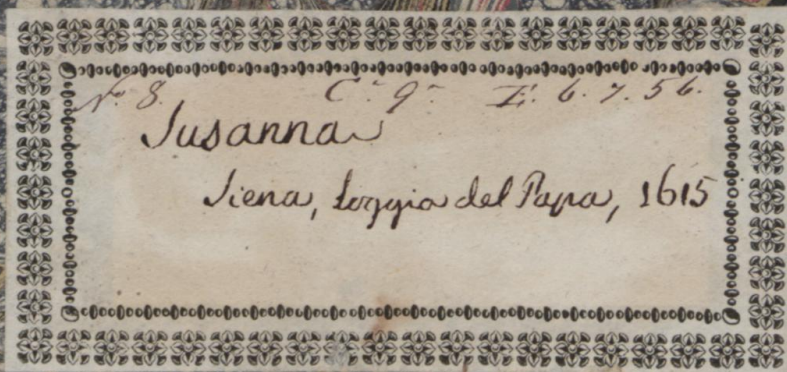 N.º 8. C.ª 9.ª E. 6. 7. 56.
Susanna
Siena, Loggia del Papa, 1615